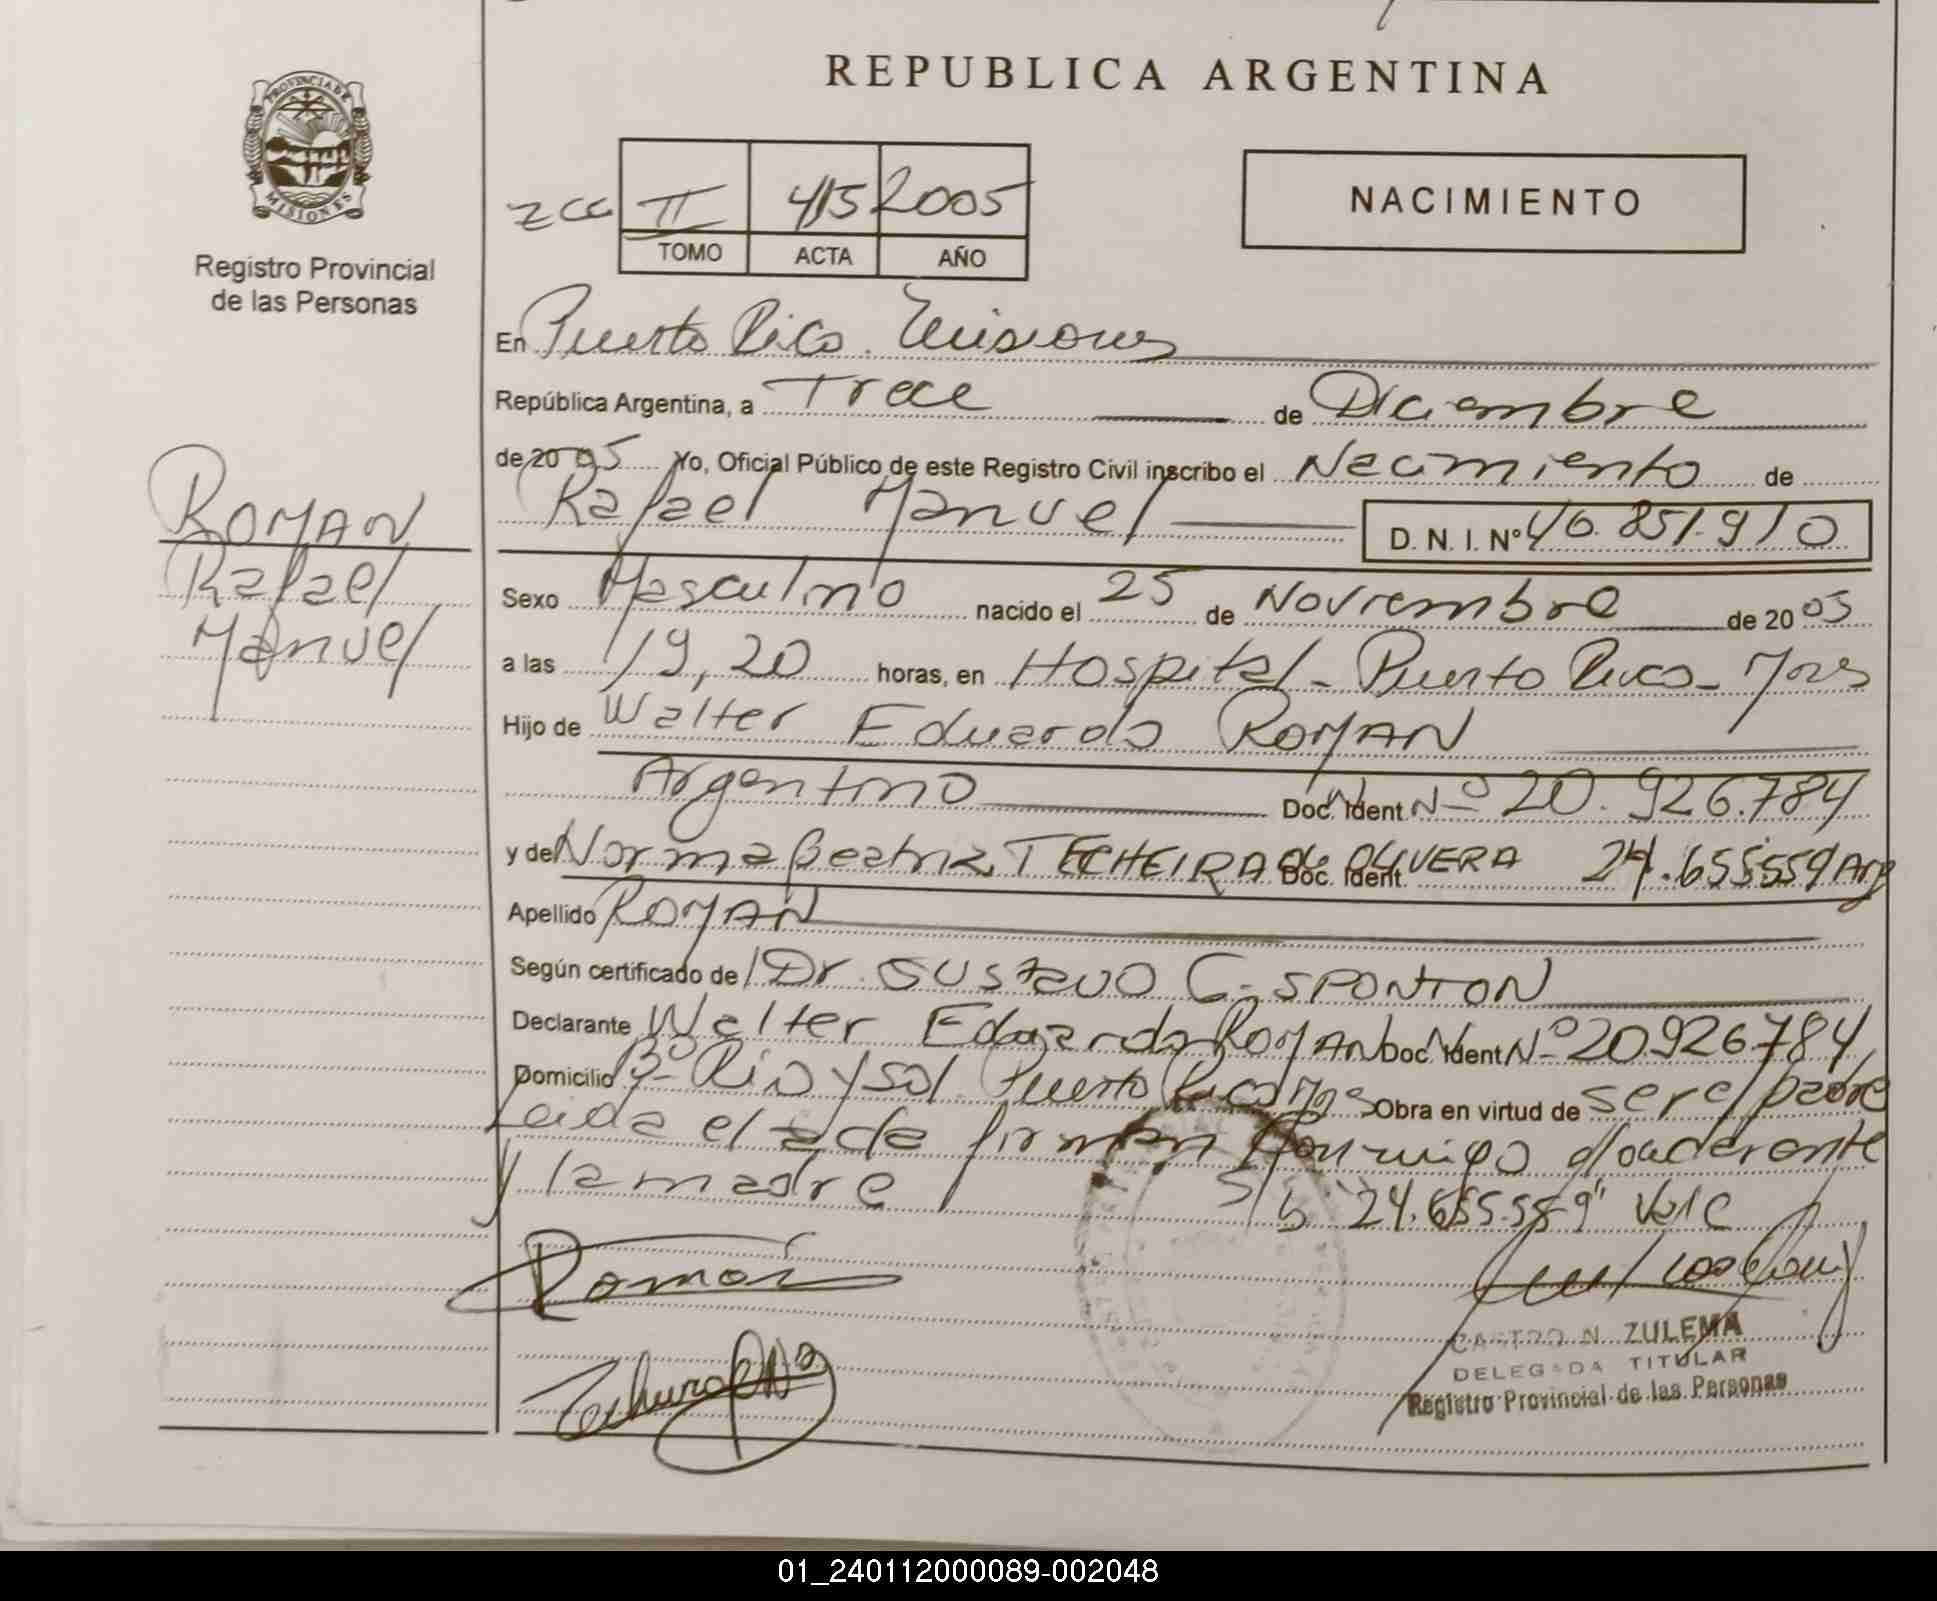 REPUBLICA ARGENTINA
PROVINCIA DE
MISIONES
Registro Provincial
de las Personas
II 415 2005
TOMO ACTA AÑO
NACIMIENTO
En Puerto Rico. Misiones
República Argentina, a Trece de Diciembre
de 2005 Yo, Oficial Público de este Registro Civil inscribo el Nacimiento de
Rafael Manuel D. N. I. Nº 46.851.910
ROMAN
Rafael
Manuel
Sexo Masculino nacido el 25 de Noviembre de 2005
a las 19,20 horas, en Hospital - Puerto Rico - Mnes
Hijo de Walter Eduardo ROMAN
Argentino Doc. Ident. Nº 20.926.784
y de Norma Beatriz TECHEIRA de OLIVERA Doc. Ident. 24.655.559 Arg
Apellido ROMAN
Según certificado de Dr. GUSTAVO G. SPONTON
Declarante Walter Eduardo ROMAN Doc. Ident Nº 20.926.784
Domicilio Bº Rio y Sol. Puerto Rico Mnes Obra en virtud de ser el padre
Leida el acta firman conmigo el declarante
y la madre S/b "24.655.559" Vale
Roman
CASTRO N. ZULEMA
DELEGADA TITULAR
Registro Provincial de las Personas
01_240112000089-002048